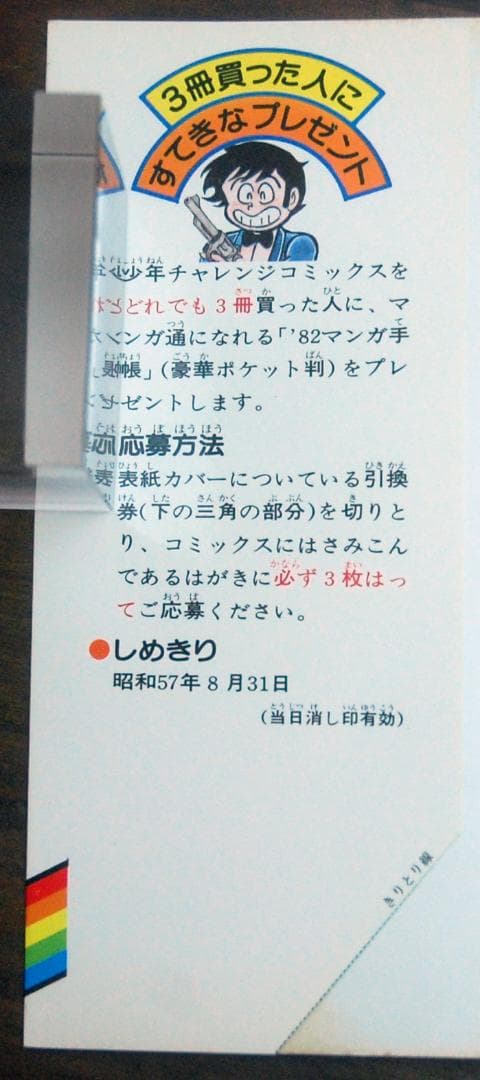 3冊買った人に
すてきなプレゼント
少年チャレンジコミックスを
どれでも3冊買った人に、マ
ンガ通になれる「'82マンガ手
帳」(豪華ポケット判)をプレ
ゼントします。
応募方法
表紙カバーについている引換
券(下の三角の部分)を切りと
り、コミックスにはさみこん
であるはがきに必ず3枚はっ
てご応募ください。
●しめきり
昭和57年8月31日
(当日消し印有効)
きりとり線